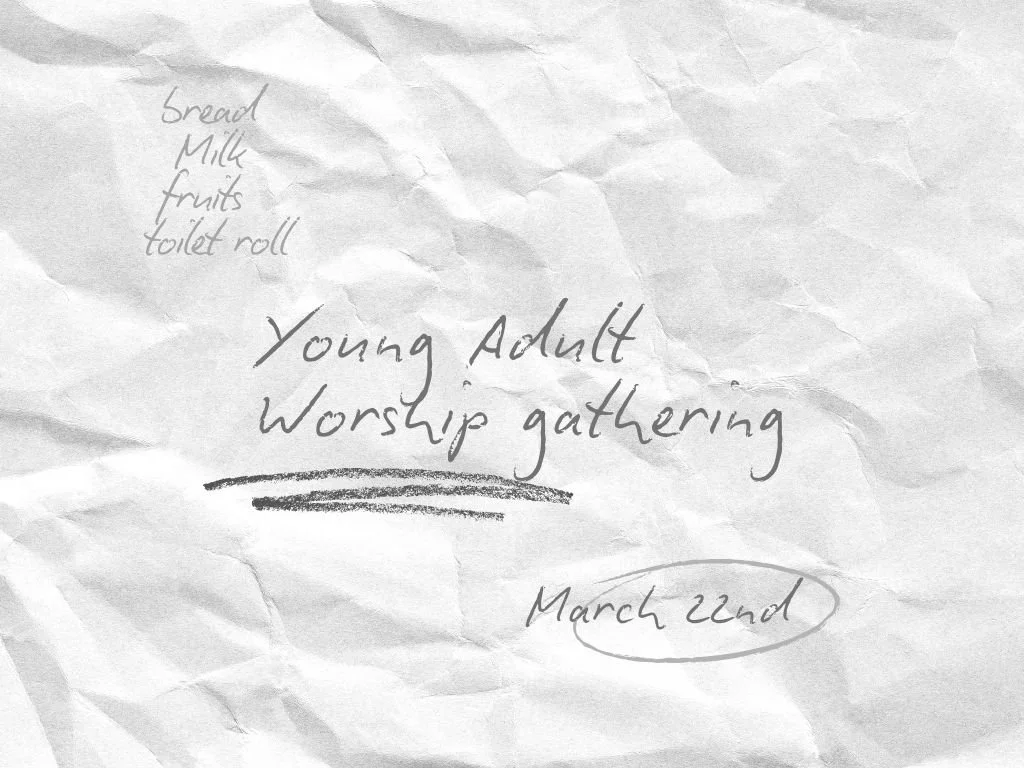 bread
Milk
fruits
toilet roll
Young Adult
Worship gathering
March 22nd